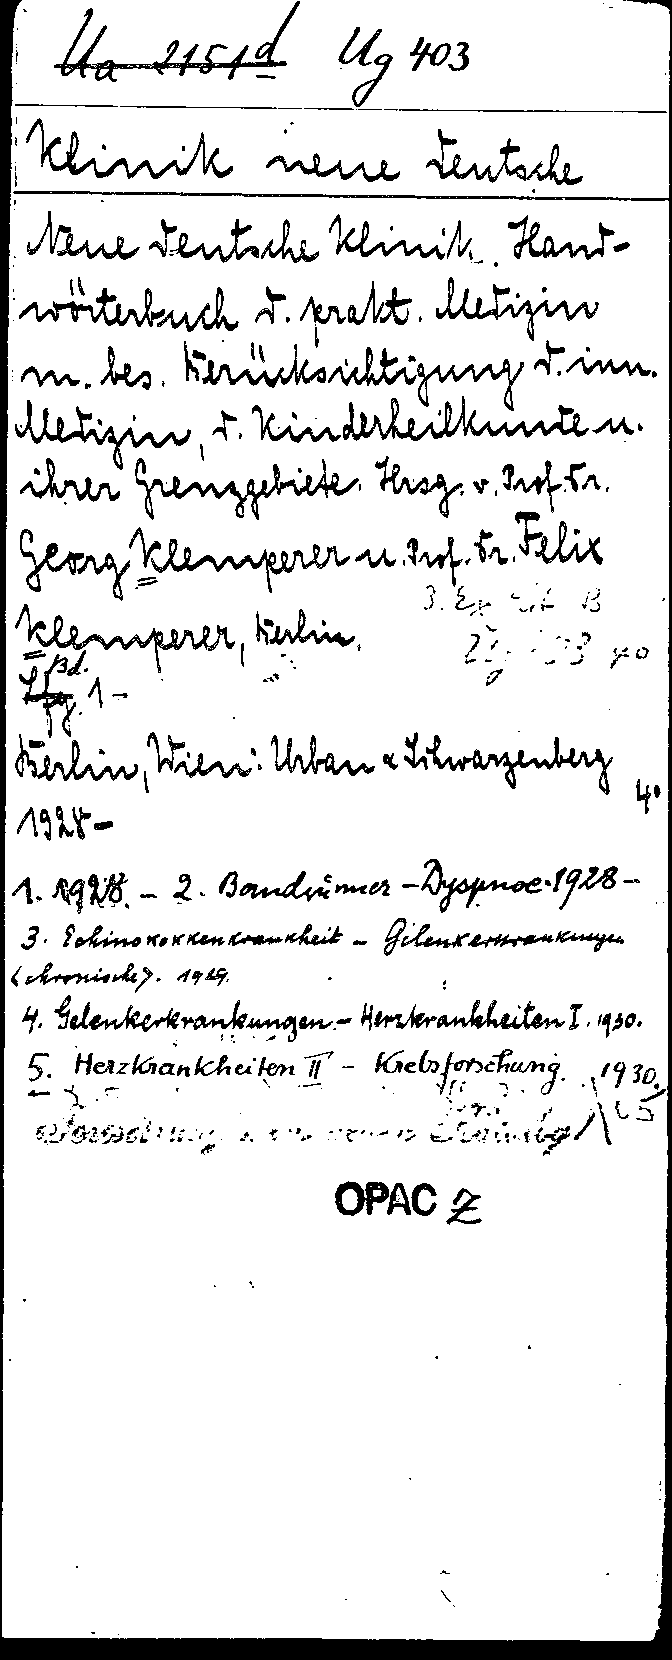 Ua 2151d Ug 403
Klinik neue deutsche
Neue deutsche Klinik. Hand-
wörterbuch d. prakt. Medizin
m. bes. Berücksichtigung d. inn.
Medizin, d. Kinderheilkunde u.
ihrer Grenzgebiete. Hrsg. v. Prof. Dr.
Georg Klemperer u. Prof. Dr. Felix
Klemperer, Berlin.
3. Ex B
Bd.
Lfg. 1-
Berlin, Wien: Urban & Schwarzenberg
4°
1928-
1. 1928. - 2. Bandwürmer - Dyspnoe. 1928 -
3. Echinokokkenkrankheit - Gelenkerkrankungen
<chronische>. 1929.
4. Gelenkerkrankungen - Herzkrankheiten I. 1930.
5. Herzkrankheiten II - Krebsforschung. 1930.
OPAC Z